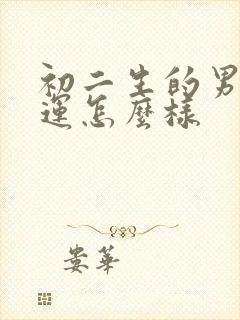 初二生的男
運怎麼樣
婁華